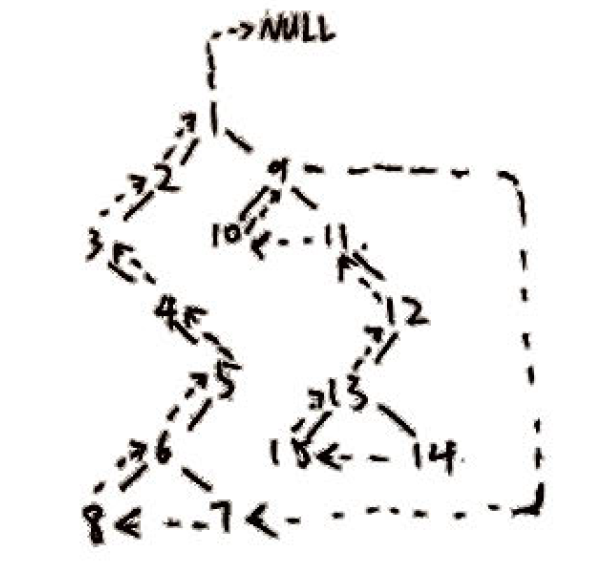 NULL
1
2 9
3 10 11
4 12
5 13
6 15 14
8 7